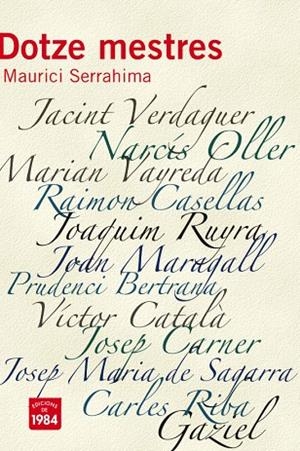 Dotze mestres
Maurici Serrahima
Jacint Verdaguer
Narcís Oller
Marian Vayreda
Raimon Casellas
Joaquim Ruyra
Joan Maragall
Prudenci Bertrana
Víctor Català
Josep Carner
Josep Maria de Sagarra
Carles Riba
Gaziel
EDICIONS
DE
1984